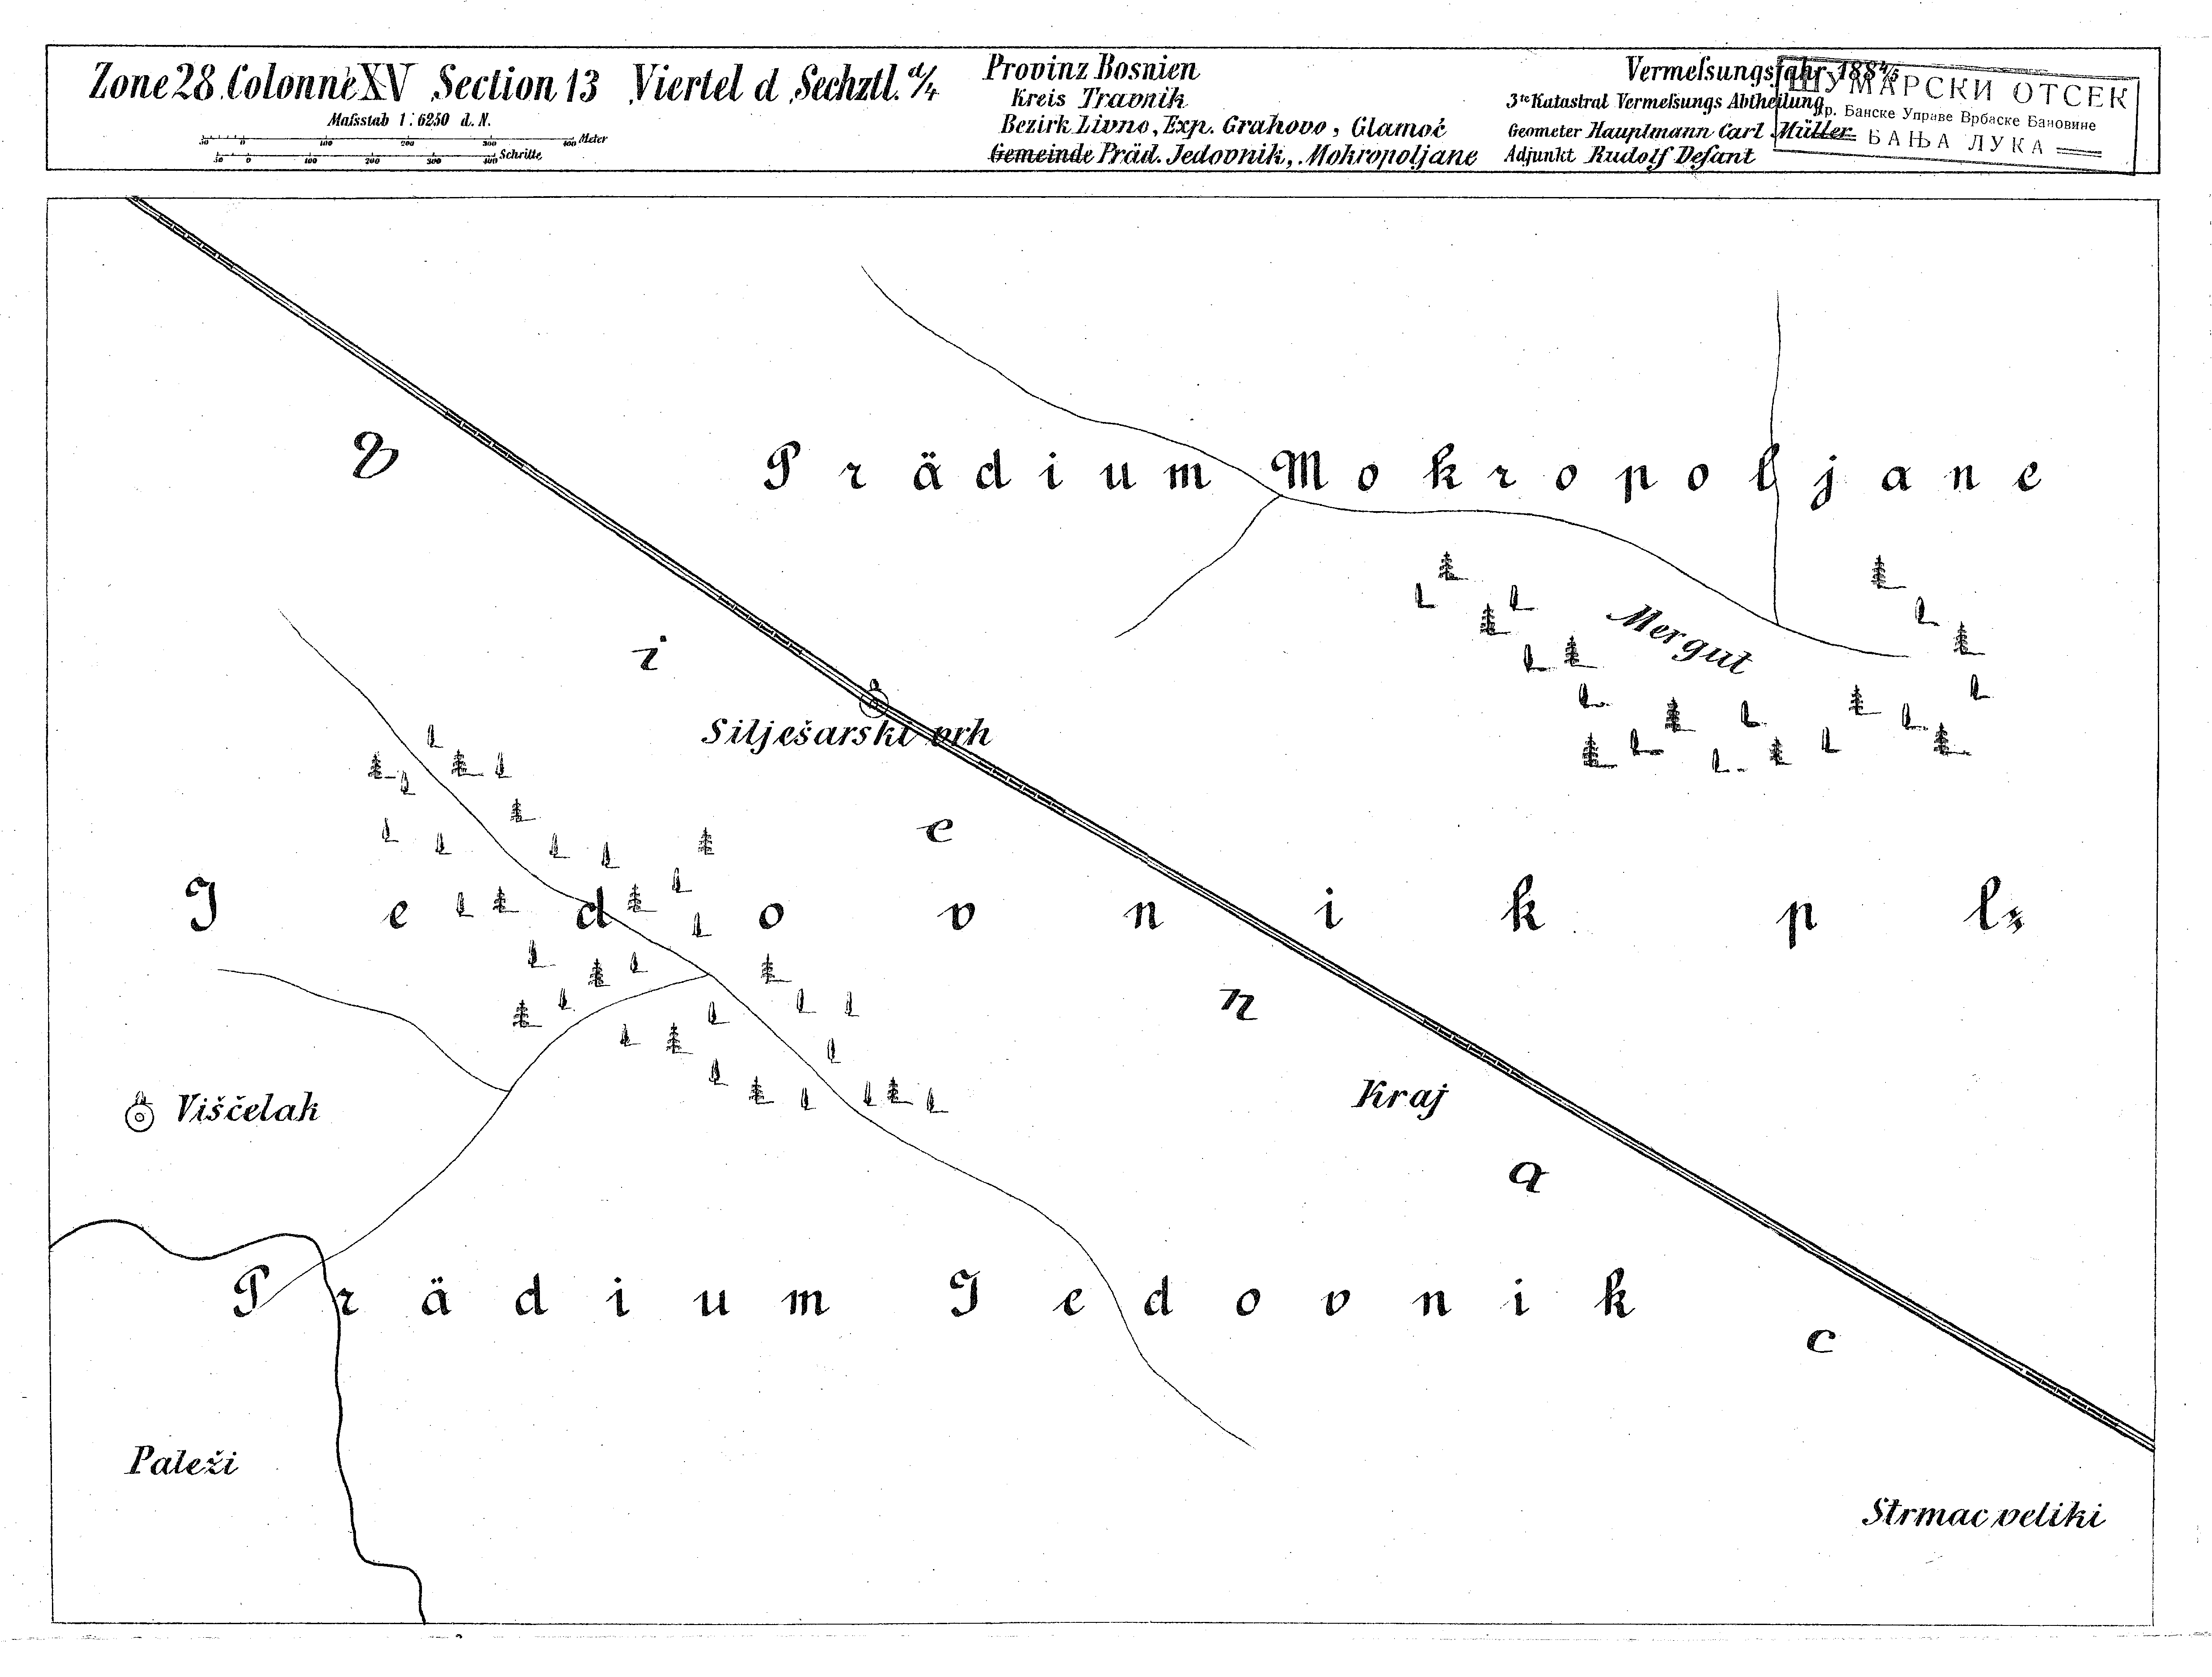 Zone 28 Colonne XV Section 13 Viertel d Sechztl. d/4
Maſsstab 1:6250 d. N.
50 0 100 200 300 400 Meter
50 0 100 200 300 400 Schritte
Provinz Bosnien
Kreis Travnik
Bezirk Livno, Exp. Grahovo, Glamoč
Gemeinde Präd. Jedovnik, Mokropoljane
Vermeſsungsjahr 1884/5
3te Katastral Vermeſsungs Abtheilung
Geometer Hauptmann Carl Müller
Adjunkt Rudolf Defant
ШУМАРСКИ ОТСЕК
Кр. Банске Управе Врбаске Бановине
БАЊА ЛУКА
Vienac
Prädium Mokropoljane
Mergut
Silješarski vrh
Jedovnik pl.
Kraj
Viščelak
Prädium Jedovnik
Paleži
Strmac veliki